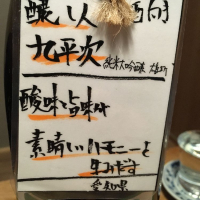 醸し人
九平次
純米大吟醸
酸味と旨味が
素晴しいハーモニーを
生みだす
愛知県